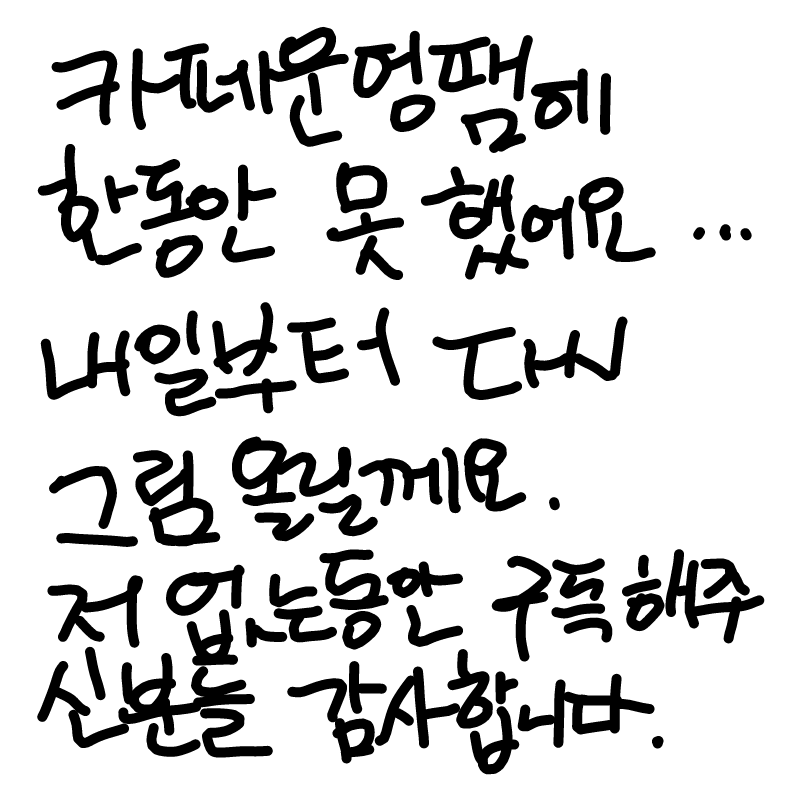 카페운영땜에
한동안 못했어요...
내일부터 다시
그림 올릴게요.
저 없는동안 구독해주
신분들 감사합니다.